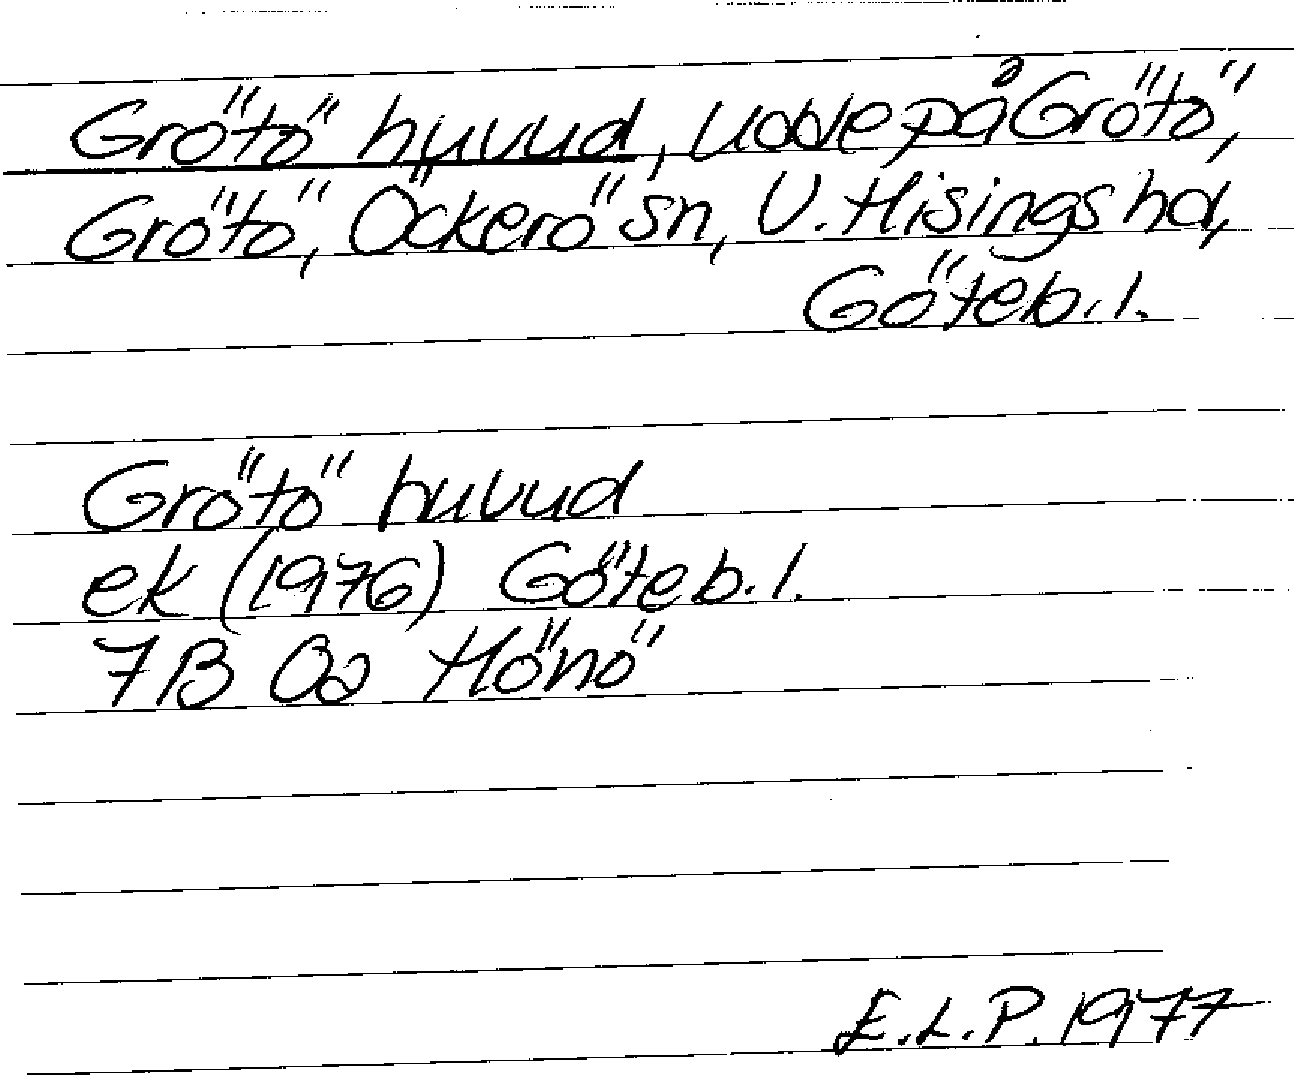 Grötö huvud, udde på Grötö,
Grötö, Öckerö sn, V. Hisings hd,
Göteb. l.
Grötö huvud
ek (1976) Göteb. l.
7B 0a Hönö
E.L.P. 1977